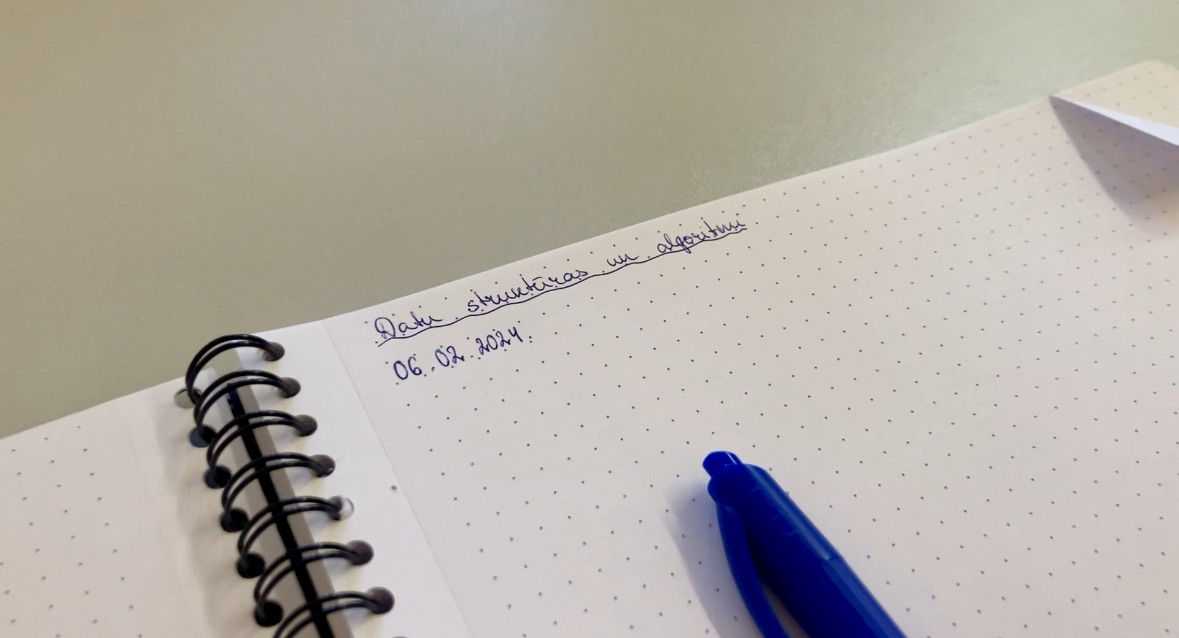 Datu struktūras un algoritmi
06.02.2024.